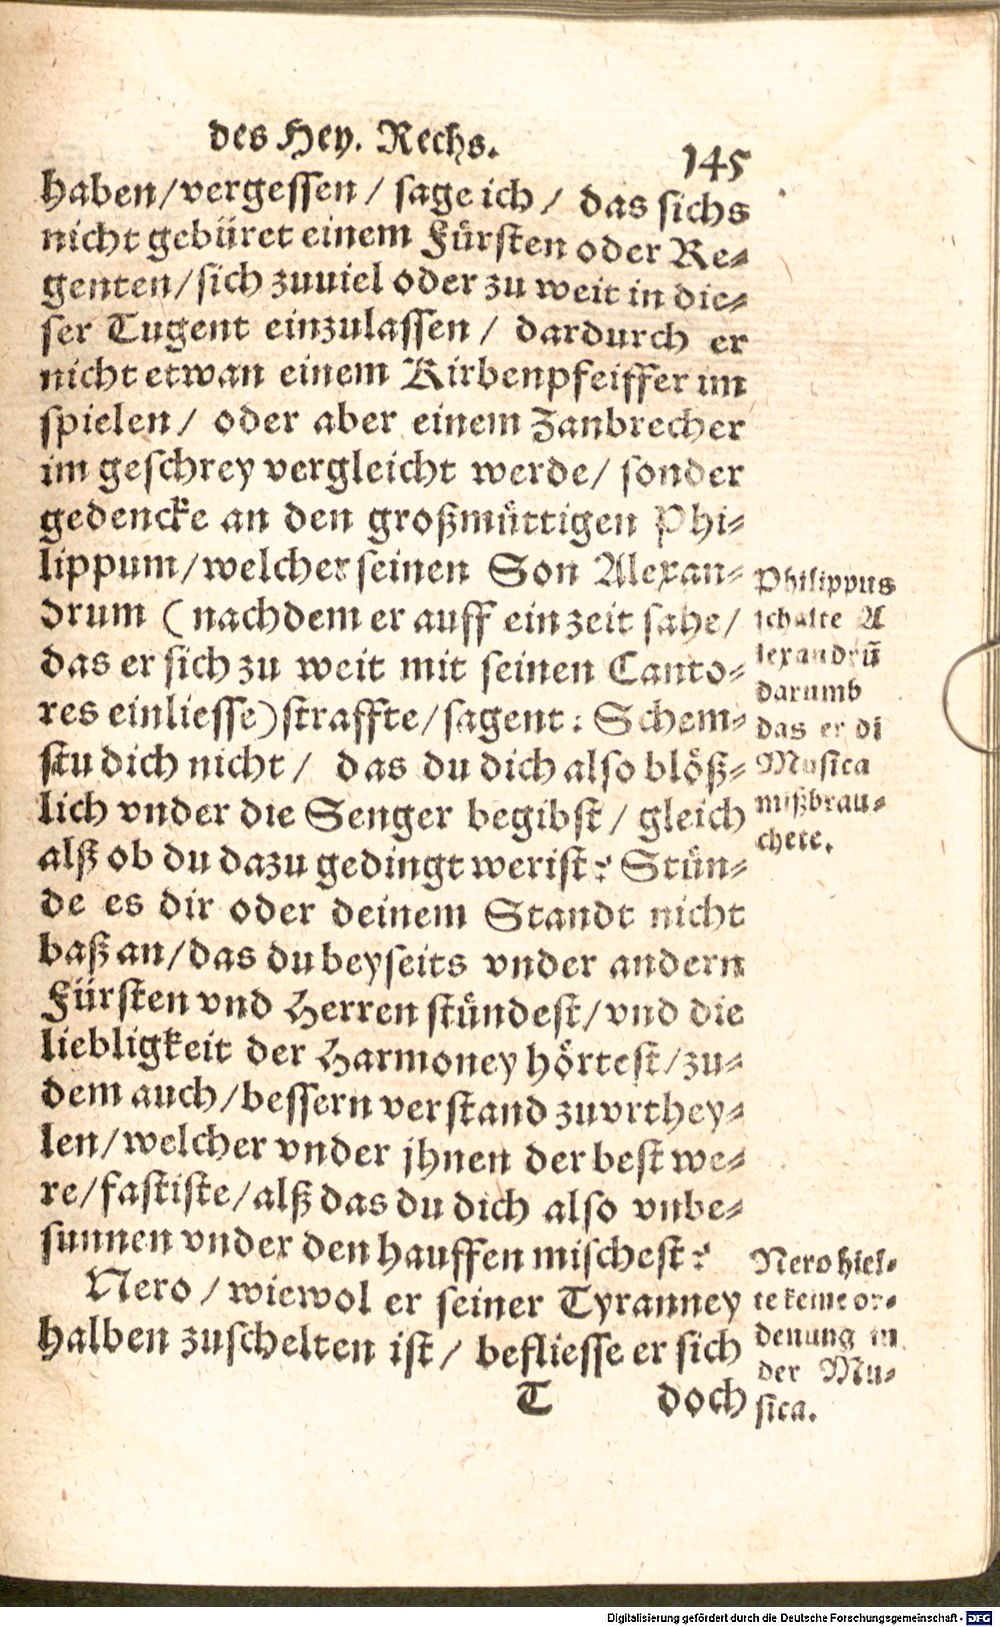 des Hey. Rechs.
145
haben/vergessen / sage ich / das sichs
nicht gebüret einem Fürsten oder Re-
genten/sich zuuiel oder zu weit in die-
ser Tugent einzulassen / dardurch er
nicht etwan einem Kirbenpfeiffer im
spielen / oder aber einem Zanbrecher
im geschrey vergleicht werde / sonder
gedencke an den großmüttigen Phi-
lippum/welcher seinen Son Alexan-
drum (nachdem er auff ein zeit sahe/
das er sich zu weit mit seinen Canto-
res einliesse) straffte/sagent: Schem-
stu dich nicht / das du dich also blöß-
lich vnder die Senger begibst / gleich
alß ob du dazu gedingt werist? Stün-
de es dir oder deinem Standt nicht
baß an/das du beyseits vnder andern
Fürsten vnd Herren stündest/vnd die
liebligkeit der Harmoney hörtest/zu-
dem auch/bessern verstand zuvrthey-
len/welcher vnder jhnen der best we-
re/fastiste/alß das du dich also vnbe-
sunnen vnder den hauffen mischest?
Nero / wiewol er seiner Tyranney
halben zuschelten ist / befliesse er sich
T doch
Philippus
schalte A
lexandrũ
darumb
das er di
Musica
mißbrau-
chete.
Nero hiel-
te keine or-
denung in
der Mu-
sica.
Digitalisierung gefördert durch die Deutsche Forschungsgemeinschaft - DFG